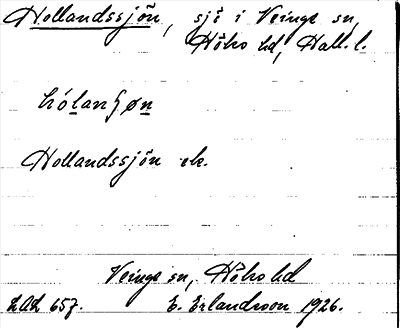 Hollandssjön, sjö i Veinge sn,
Höks hd, Hall. l.
hólanʃøn
Hollandssjön ek.
Veinge sn, Höks hd
LAL 657. E. Erlandsson 1926.